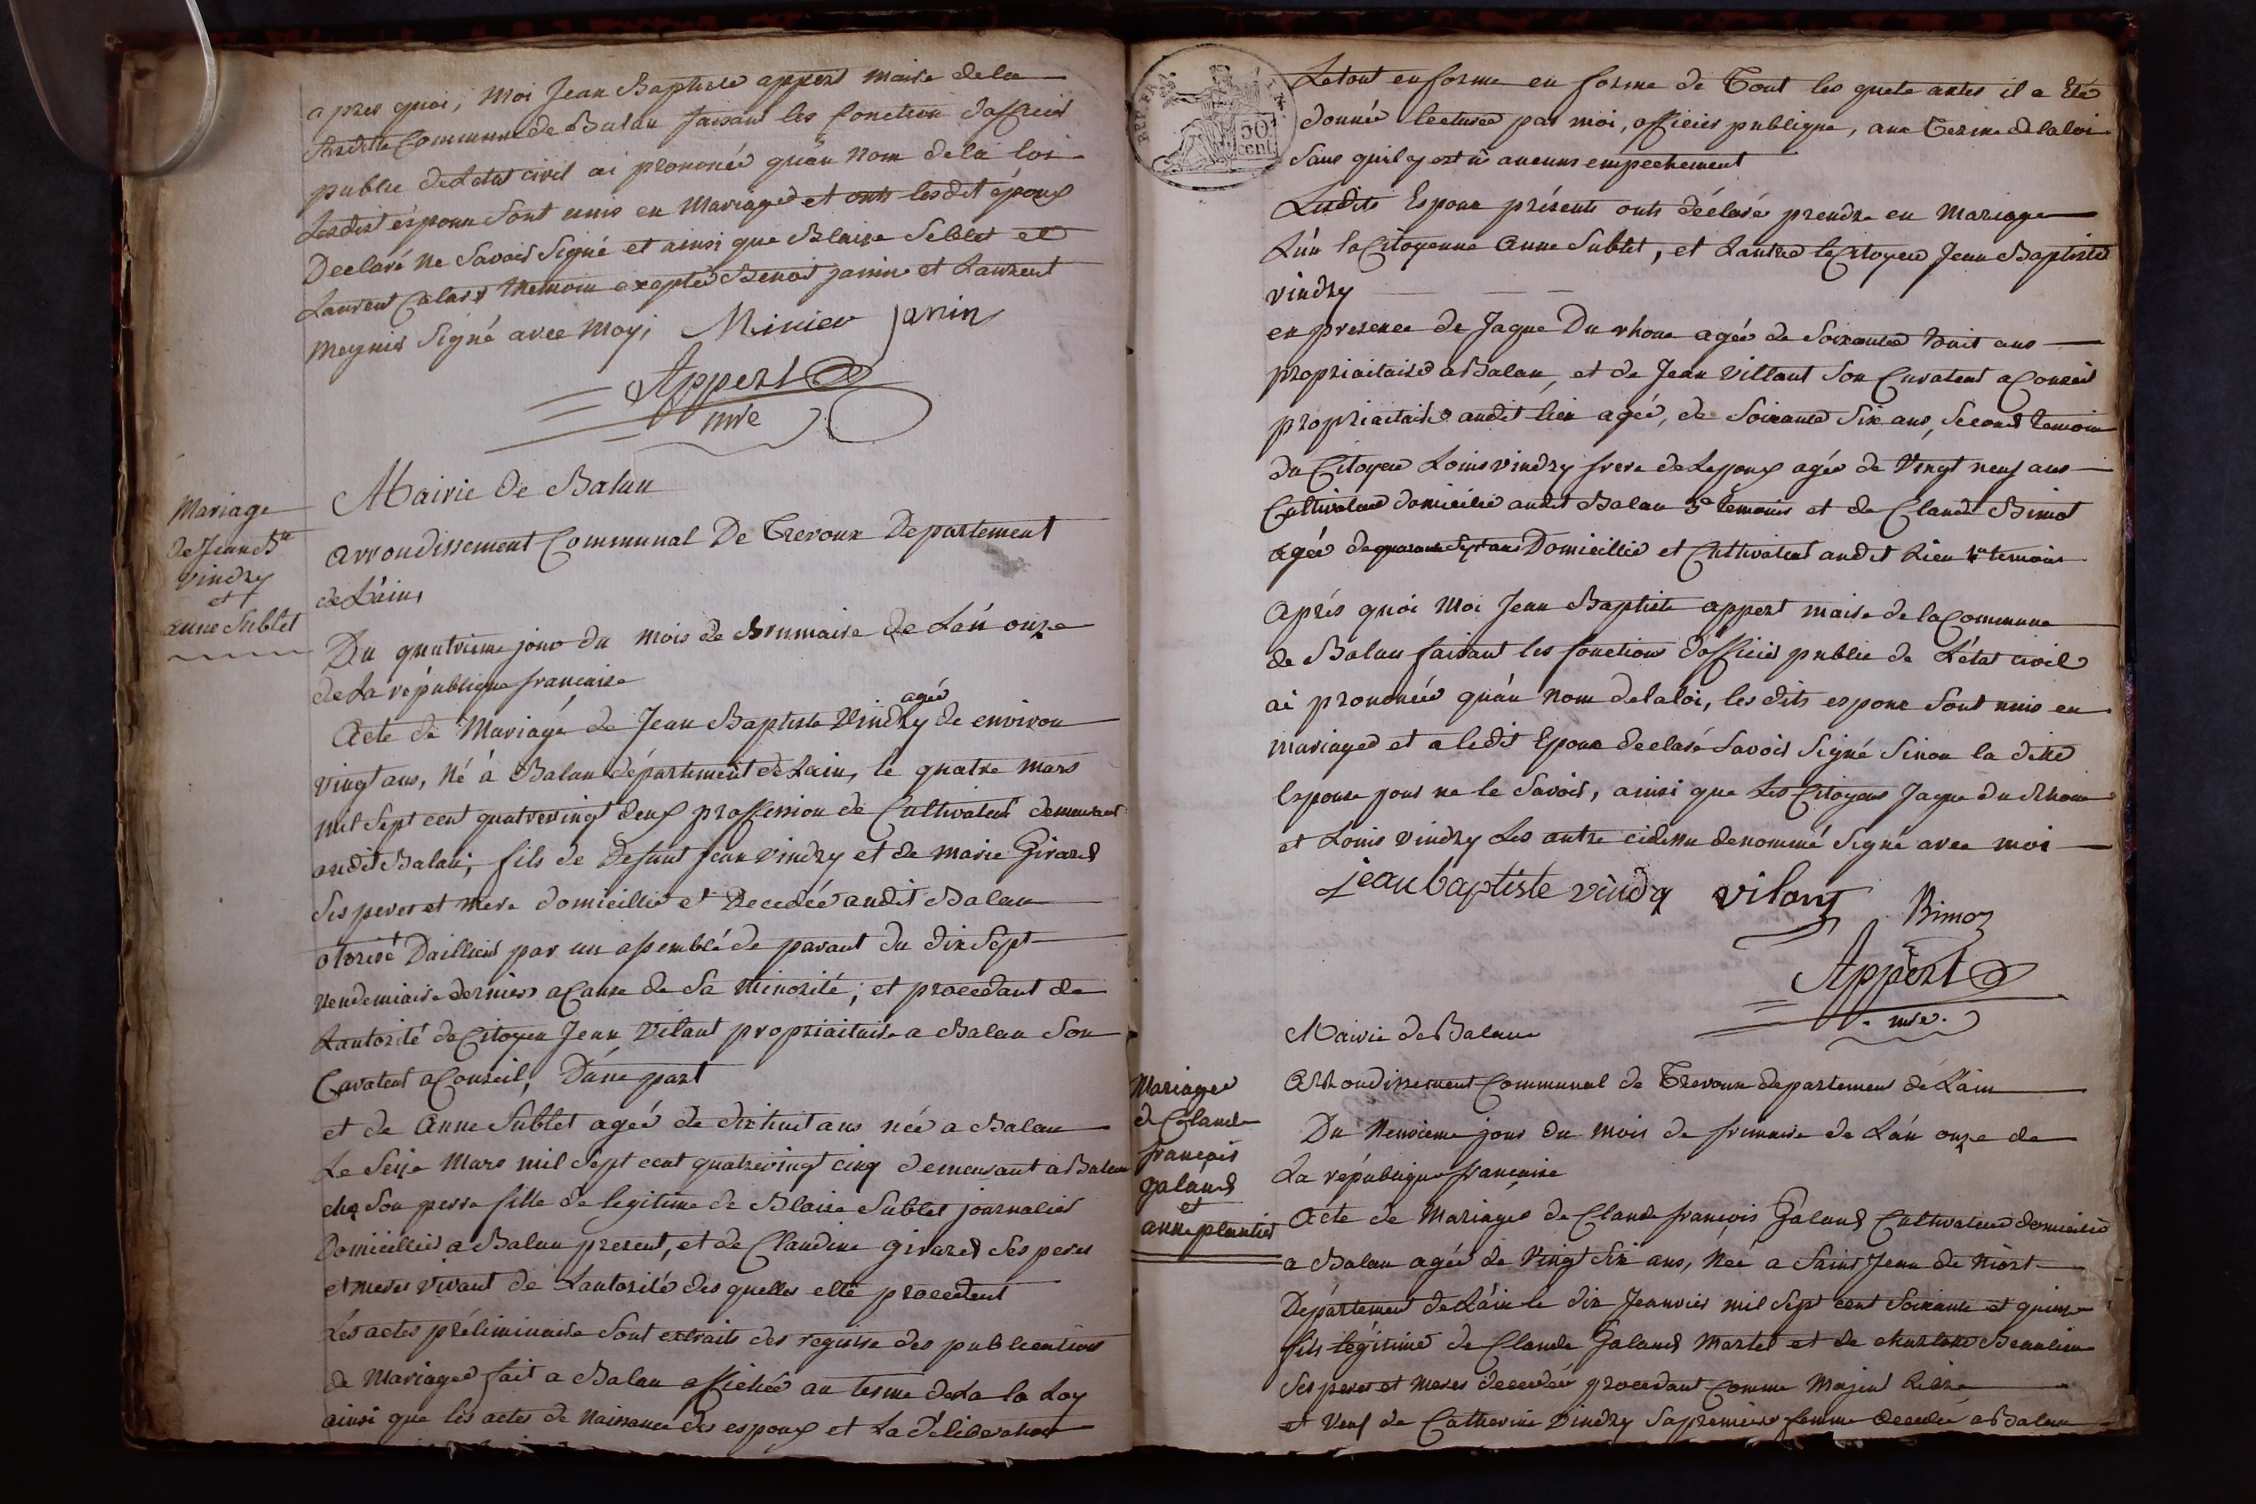 apres quoi, moi Jean Baptiste appert maire de la
Susditte Commune de Balan faisant les fonction d'officier
public de Letat civil ai prononcé qu'au nom de la loi
Lesdit espoux sont unis en Mariage et onts lesdit époux
Declaré ne Savoir Signé et ainsi que Blaise Seblet et
Laurent Calas temoin exepté Benoit janin et Laurent
meynier Signé avec moy; Minier janin
Appert
mre
Mariage
de Jean Bte
vindry
et
anne Sublet
Mairie de Balan
arrondissement Communal De Trevoux Departement
de L'ain
Du quatrieme jour du mois de Brumaire de L'an onze
de La république francaise
agée
Acte de Mariage de Jean Baptiste Vindry de environ
vingt ans, Né à Balan département de Lain, le quatre mars
mil Sept cent quatrevingt deux proffession de Cultivateur demeurant
audit Balan; fils de Defunt Jean vindry et de marie Girard
Ses peres et mere domicillié et Decedée audit Balan
otorisé Dailliers par un assemblé de parant du dix Sept
vendemiaire dernier a Cause de Sa Minorité; et procedant de
Lautorité de Citoyen Jean Vilant propriaitaire a Balan Son
Curateur a Conseil, D'une part
et de Anne Sublet agée de dix huit ans née a Balan
Le Seize Mars mil Sept cent quatrevingt cinq demeurant a Balan
chez Son perre fille de legitime de Blaise Sublet journalier
Domicillié a Balan present, et de Claudine girard Ses peres
et meres vivant de Lautorité des quelles elle procedent
Les actes préliminaire Sont extraits des registre des publications
de Mariage fait a Balan affichée au terme de La la Loy
ainsi que les actes de Naissance des espoux et La déliberation
REP. FRA.
50
cent
Le tout en forme en forme de Tout les quels actes il a Eté
donnée lecturee par moi, officier publique, aux Terme de la loi
Sans quil y ait u aucuns empechement
Lesdits Espoux présents onts déclarés prendre en Mariage
L'un la Citoyenne Anne Sublet, et Lautre le Citoyen Jean Baptiste
vindry
en presence de Jaque Du rhone agée de Soixante huit ans
propriaitaire a Balan, et de Jean Villant Son Curateur a Conseil
propriaitaire audit lieu agée, de Soixante Six ans, Second temoin
du Citoyen Louis vindry frere de Lepoux agée de Vingt neuf ans
Cultivateur domicilié audit Balan 3e temoin et de Claude Bimot
agée de quarante Sept ans Domicillié et Cultivateur audit Lieu 4e temoin
Aprés quoi Moi Jean Baptiste appert maire de la Commune
de Balan faisant les fonctions d'officier public de L'état civil
ai prononcée qu'au nom de la loi, les dits espoux Sont unis en
mariage et a ledit Epoux declaré Savoir Signé Sinon la ditte
Espouse pour ne le Savoir, ainsi que Les Citoyens Jaque du Rhone
et Louis vindry Les autre cidessu denommé Signé avec moi
jean baptiste vindry vilant Bimoz
Appert
mre
Mariage
de Claude
françois
galand
et
anne plantier
Mairie de Balan
Arrondissement Communal de Trevoux departement de L'ain
Du Neuvieme jour du mois de frimaire de L'an onze de
La république française
Acte de Mariage de Claude françois Galand Cultivateur domicilié
a Balan agée de Vingt Six ans, Née a Saint Jean de Niost
Département de L'ain le dix Jeanvier mil Sept cent Soixante et quinze
fils légitime de Claude Galand Martel et de Charlotte Beaulieu
Ses peres et Meres decedée procedant Comme Majeur libre
et Veuf de Catherine Vindry Sa premiere femme decedée a Balan